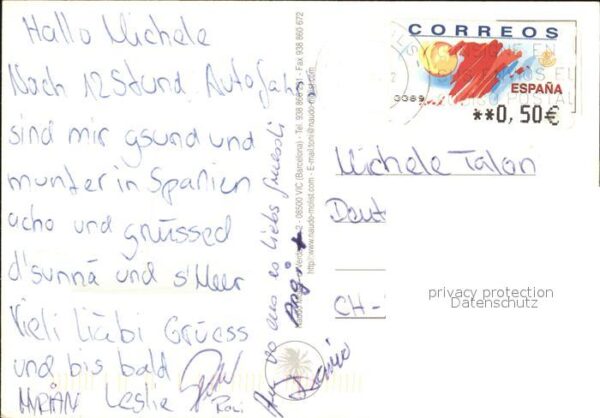 Hallo Michele
Nach 12 Stund. Autofah
sind mir gsund und
munter in Spanien
acho und grüssed
d'sunnä und s'Meer
Vieli Liäbi Grüess
und bis bald
MIRIAN Leslie
Roni
Au vo eus es liebs gruessli
Angi +
Dario
08500 VIC (Barcelona) - Tel. 938 86
- Fax 938 860 672
http://www.naudo-molist.com - E-mail:toni@naudo-molist.com
CORREOS
ESPAÑA
3369
**0,50€
Michele Talon
Deut
CH-
privacy protection
Datenschutz